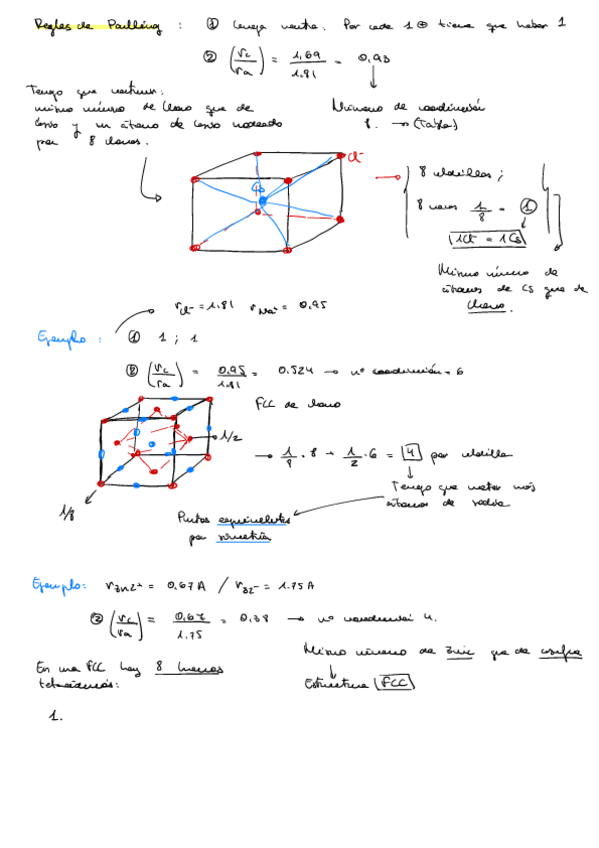 Reglas de Paulling : ① Carga neutra. Por cada 1 ⊕ tiene que haber 1
② (rc/ra) = 1,69/1.81 = 0,93
Tengo que mantener:
mismo número de cloro que de
cesio y un átomo de cesio rodeado
por 8 cloros.
Número de coordinación
8. → (Tabla)
Cl-
Cs
8 celdillas;
8 caras 1/8 = ①
1Cl = 1Cs
Mismo número de
átomos de Cs que de
cloro.
rCl- = 1.81 rNa+ = 0,95
Ejemplo : ① 1 ; 1
② (rc/ra) = 0.95/1.81 = 0.524 → nº coordinación = 6
FCC de cloro
1/2
→ 1/8 · 8 + 1/2 · 6 = 4 por celdilla
1/8
Tengo que meter más
átomos de sodio
Puntos equivalentes
por simetría
Ejemplo: rZn2+ = 0,67 A / rS2- = 1.75 A
② (rc/ra) = 0.67/1.75 = 0.38 → nº coordinación 4.
Mismo número de zinc que de azufre
En una FCC hay 8 huecos
tetraédricos:
Estructura FCC
1.